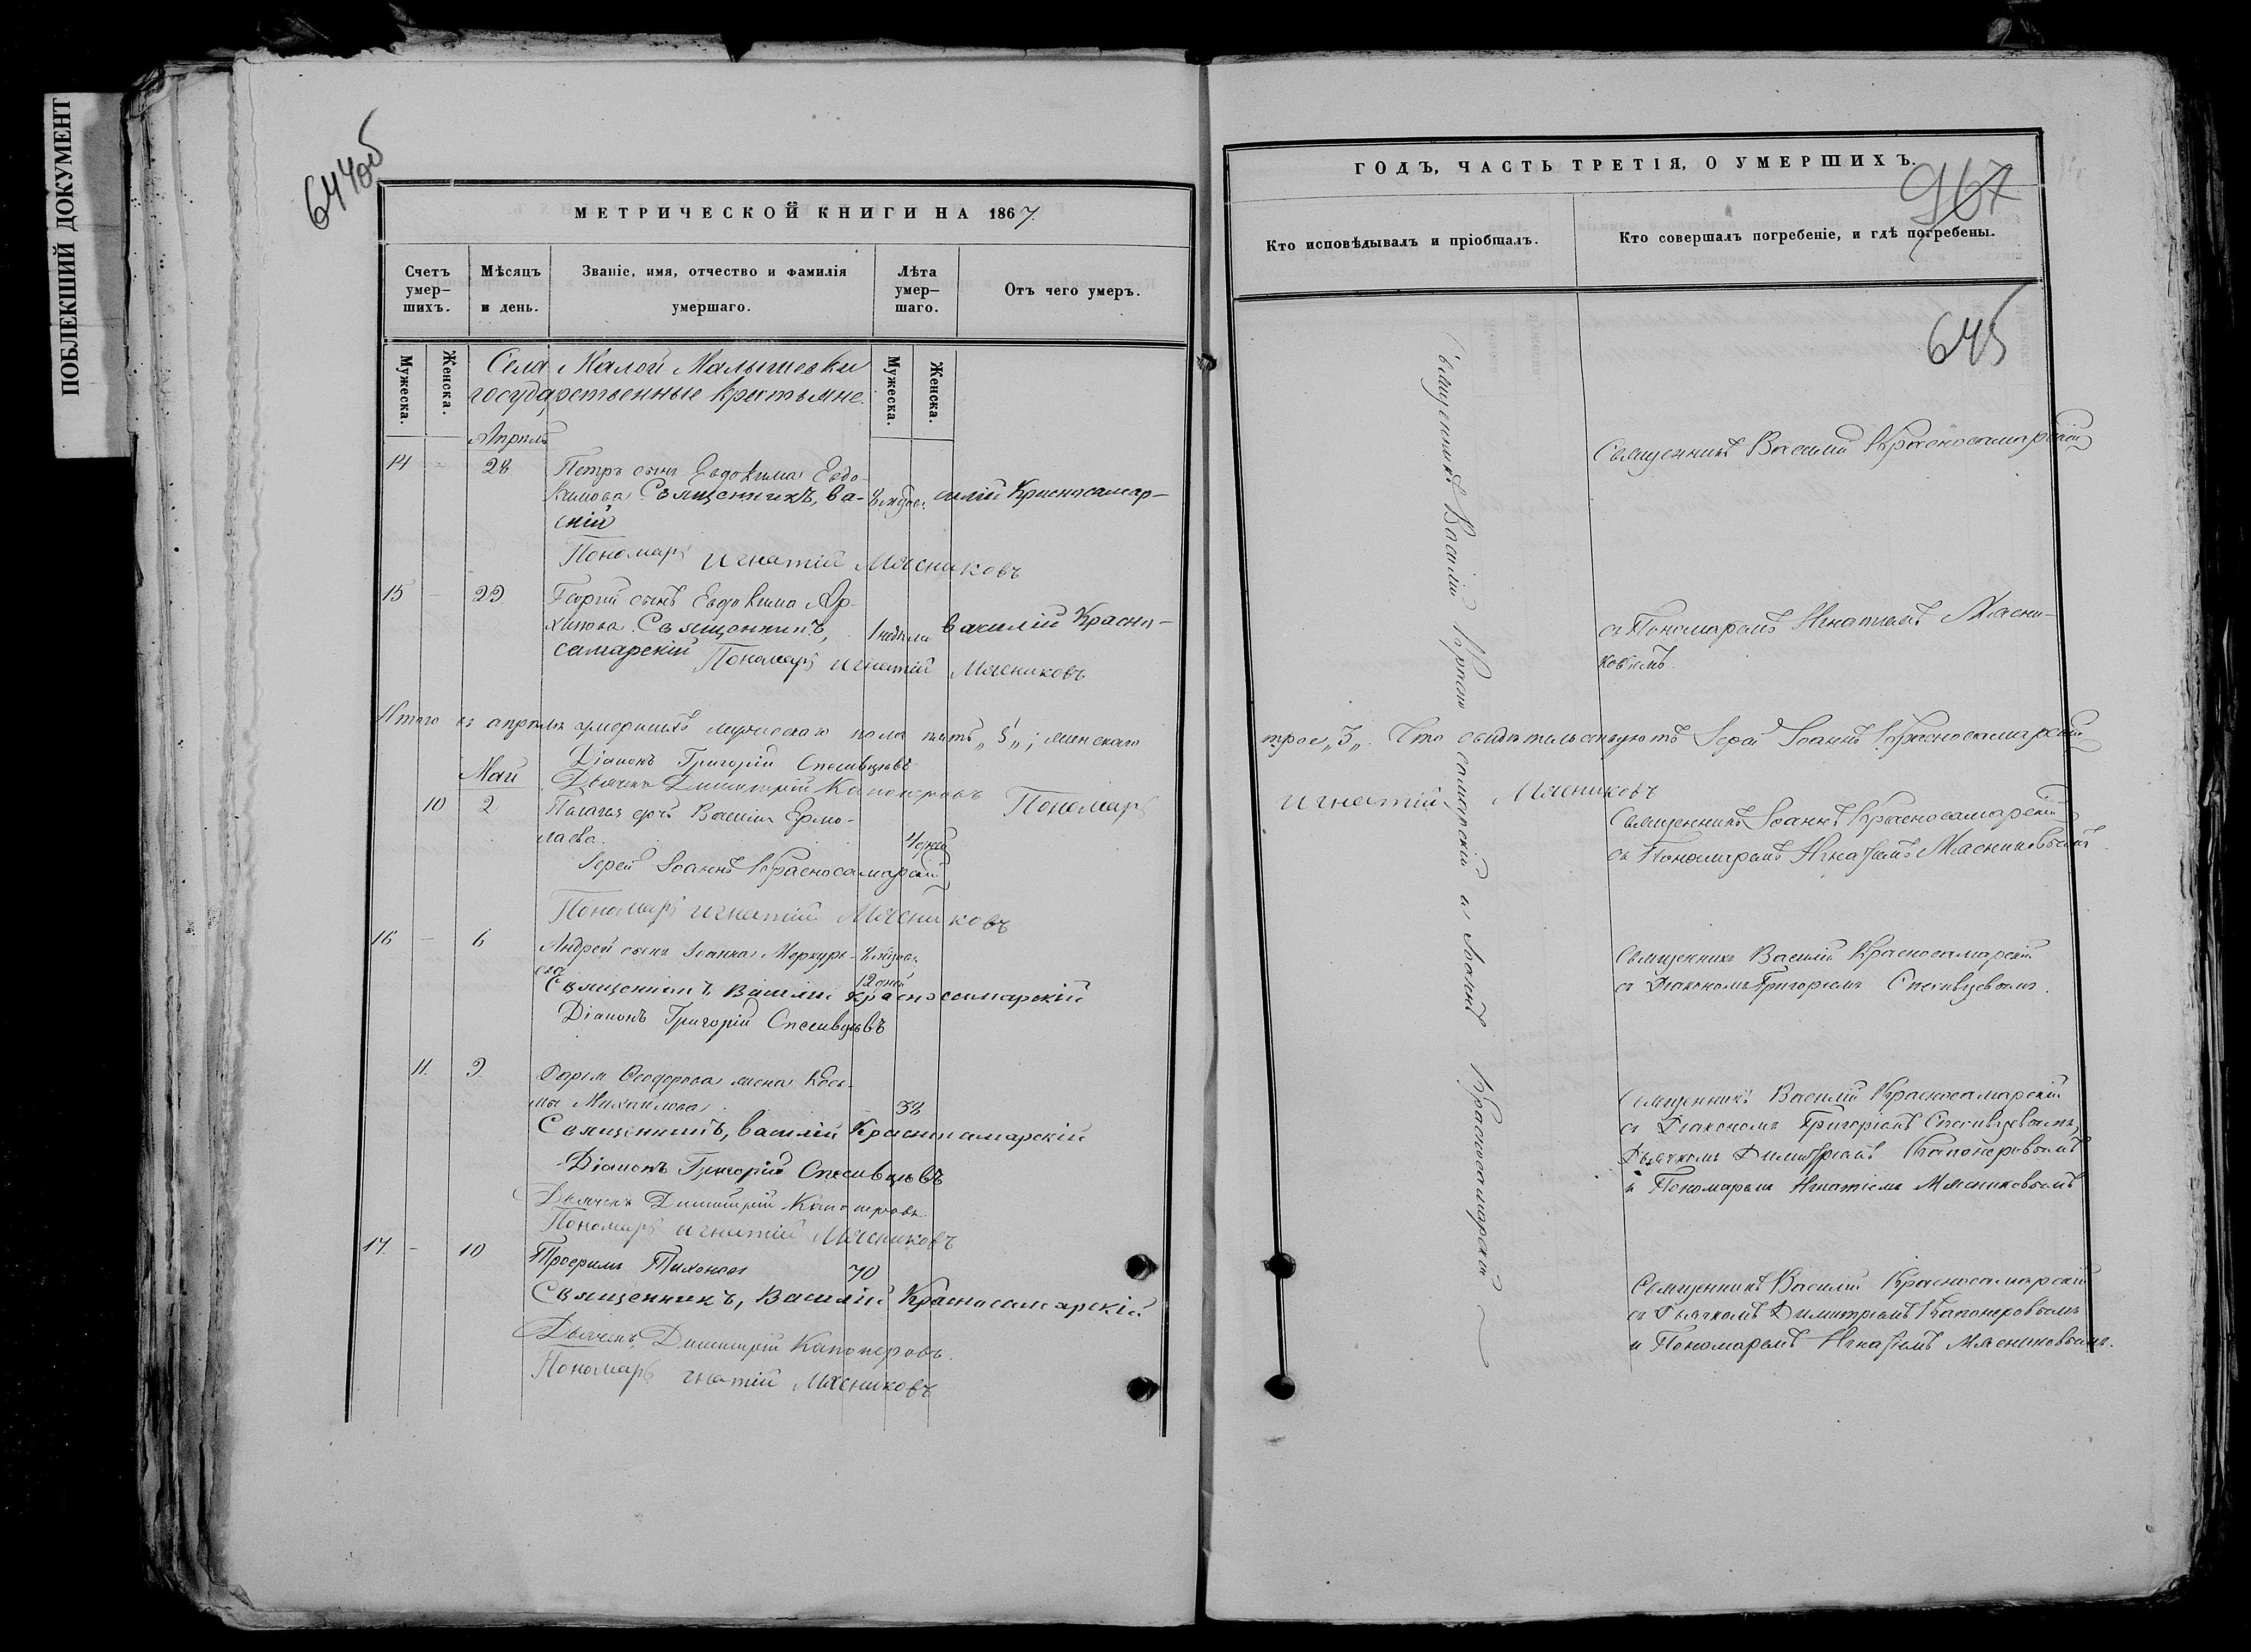 ПОБЛЕКШИЙ ДОКУМЕНТ
644об
МЕТРИЧЕСКОЙ КНИГИ НА 1867.
Счетъ умер-
шихъ.
Мѣсяцъ
и день.
Званіе, имя, отчество и фамилія
умершаго.
Лѣта
умер-
шаго.
Отъ чего умеръ.
Мужеска.
Женска.
Села Малой Малышевки
государственные крестьяне.
Мужеска.
Женска.
Апрѣль
14 - 28 Петръ сынъ Евдокима Евдо-
кимова Священникъ, Ва- силій Красносамар-
скій
Пономарь Игнатій Мясниковъ
15 - 29 Георгій сынъ Евдокима Ар-
хипова. Священникъ, 1 недѣли Василій Красно-
самарскій Пономарь Игнатій Мясниковъ
Итого въ апрѣлѣ умершихъ мужескаго пола пять „5„; женскаго
Діаконъ Григорій Спесивцевъ
Май Дьячекъ Димитрій Капонеровъ Пономарь
10 2 Пелагея дочь Василія Ермо-
лаева. 4 дней
Іерей Іоаннъ Красносамарскій
Пономарь Игнатій Мясниковъ
16 - 6 Андрей сынъ Іоанна Меркурь-
ева 12 дней
Священникъ Василій Красносамарскій
Діаконъ Григорій Спесивцевъ
11. 9 Дарья Ѳеодорова жена Кось-
мы Михайлова 38
Священникъ, Василій Красносамарскій
Діаконъ Григорій Спесивцевъ
Дьячекъ Димитрій Капонеровъ
Пономарь Игнатій Мясниковъ
17. - 10 Трофимъ Тихонов 70
Священникъ, Василій Красносамарскій
Дьячекъ Димитрій Капонеровъ.
Пономарь Игнатій Мясниковъ
ГОДЪ, ЧАСТЬ ТРЕТІЯ, О УМЕРШИХЪ.
967
Кто исповѣдывалъ и пріобщалъ.
Кто совершалъ погребеніе, и гдѣ погребены.
645
Священникъ Василій Красносамарскій и Іоаннъ Красносамарскій
Священникъ Василій Красносамарскій
съ Пономаремъ Игнатіемъ Мясни-
ковымъ.
трое „3„. Что свидѣтельствуютъ Іерей Іоаннъ Красносамарскій
Игнатій Мясниковъ
Священникъ Іоаннъ Красносамарскій
съ Пономаремъ Игнатіемъ Мясниковымъ.
Священникъ Василій Красносамарскій
съ Діакономъ Григоріемъ Спесивцевымъ.
Священникъ Василій Красносамарскій
съ Діакономъ Григоріемъ Спесивцевымъ,
Дьячкомъ Димитріемъ Капонеровымъ
и Пономаремъ Игнатіемъ Мясниковымъ
Священникъ Василій Красносамарскій
съ Дьячкомъ Димитріемъ Капонеровымъ
и Пономаремъ Игнатіемъ Мясниковымъ.